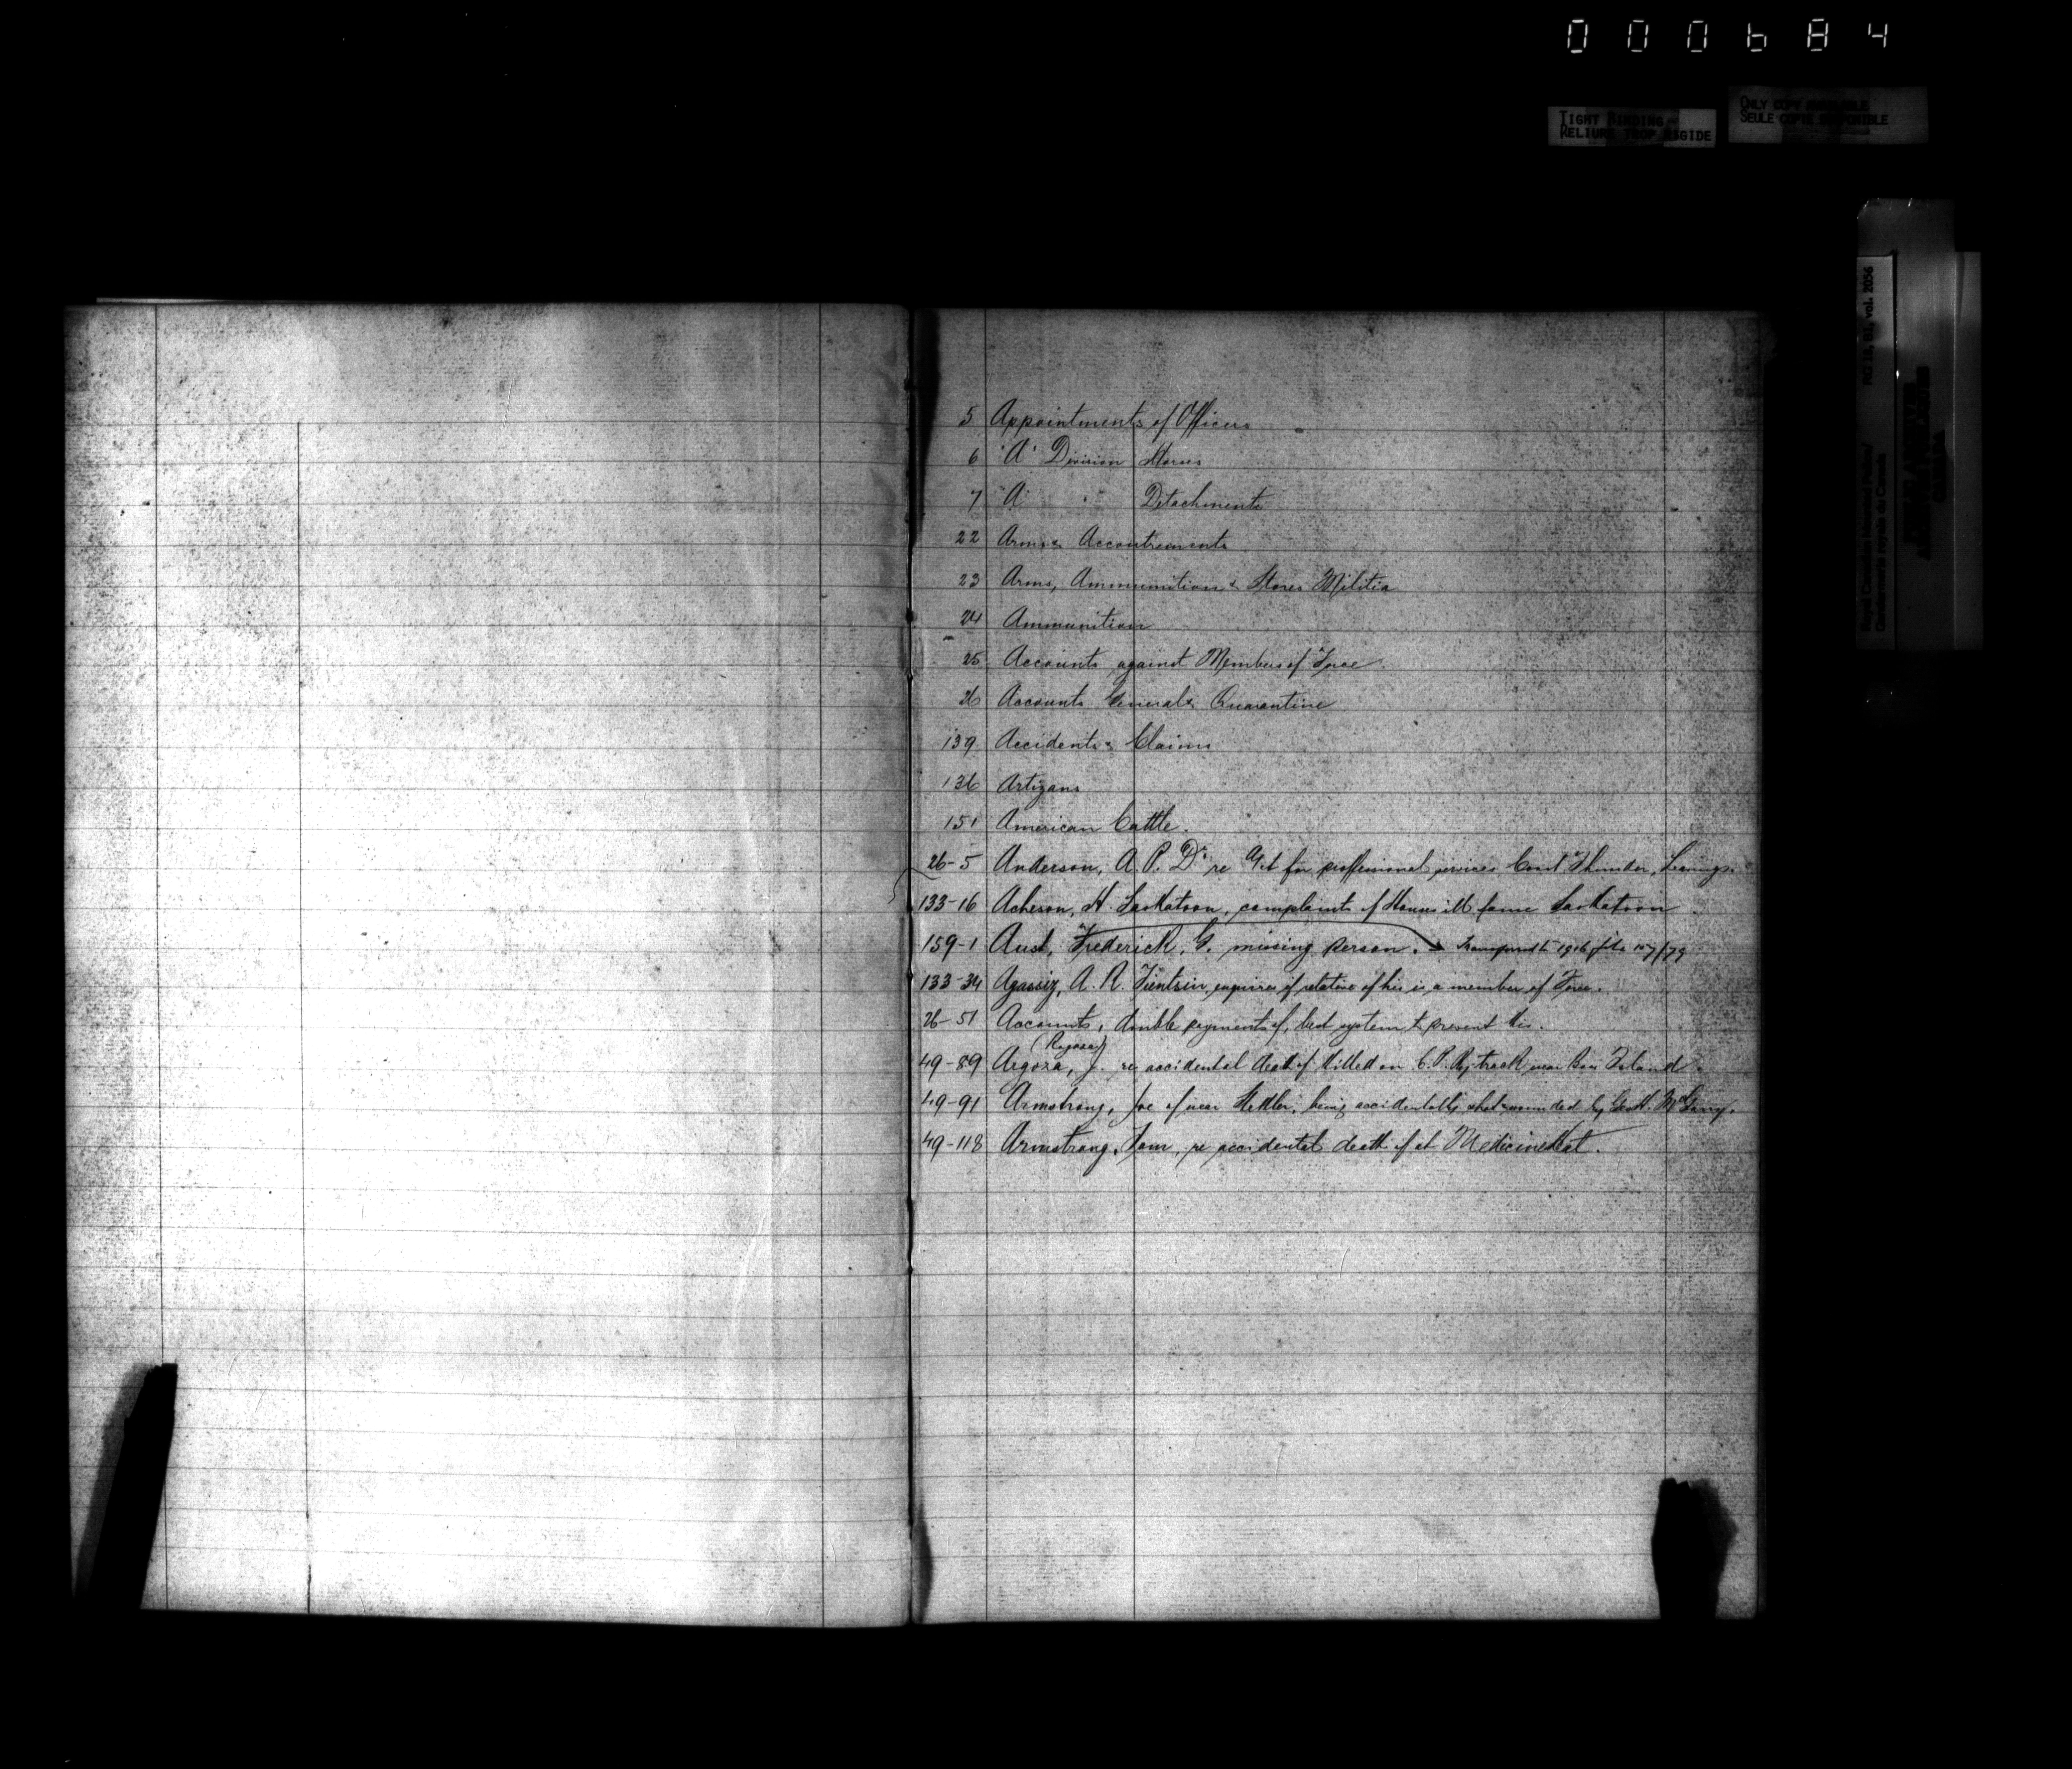 000684
TIGHT BINDING
RELIURE TROP RIGIDE
ONLY COPY AVAILABLE
SEULE COPIE DISPONIBLE
RG 18, B1, vol. 2056
Royal Canadian Mounted Police/
Gendarmerie royale du Canada
5 Appointments of Officers
6 "A" Division Horses
7 "A" " Detachments
22 Arms & Accoutrements
23 Arms, Ammunition & Stores Militia
24 Ammunition
25 Accounts against Members of Force.
26 Accounts General & Quarantine
139 Accidents & Claims
136 Artizans
151 American Cattle.
26-5 Anderson, A. P. Dr re Act for proffessional services Const Thunder,
133-16 Acheson, H. Saskatoon, complaint of Houses ill fame Saskatoon
159-1 Aust, Frederick, G. missing person. Transferred to 1916 file 157/79
133-34 Agassiz, A. R. Tientsin, enquires if relative of his is a member of Force.
26-51 Accounts, double payments of, best system to prevent this.
(Rogosa)
49-89 Aegoza, J. re accidental death of killed on C.P.Ry track near Bow Island.
49-91 Armstrong, Joe of near Stettler, being accidentally shot & wounded by
49-118 Armstrong, Tom, re accidental death of at Medicine Hat.